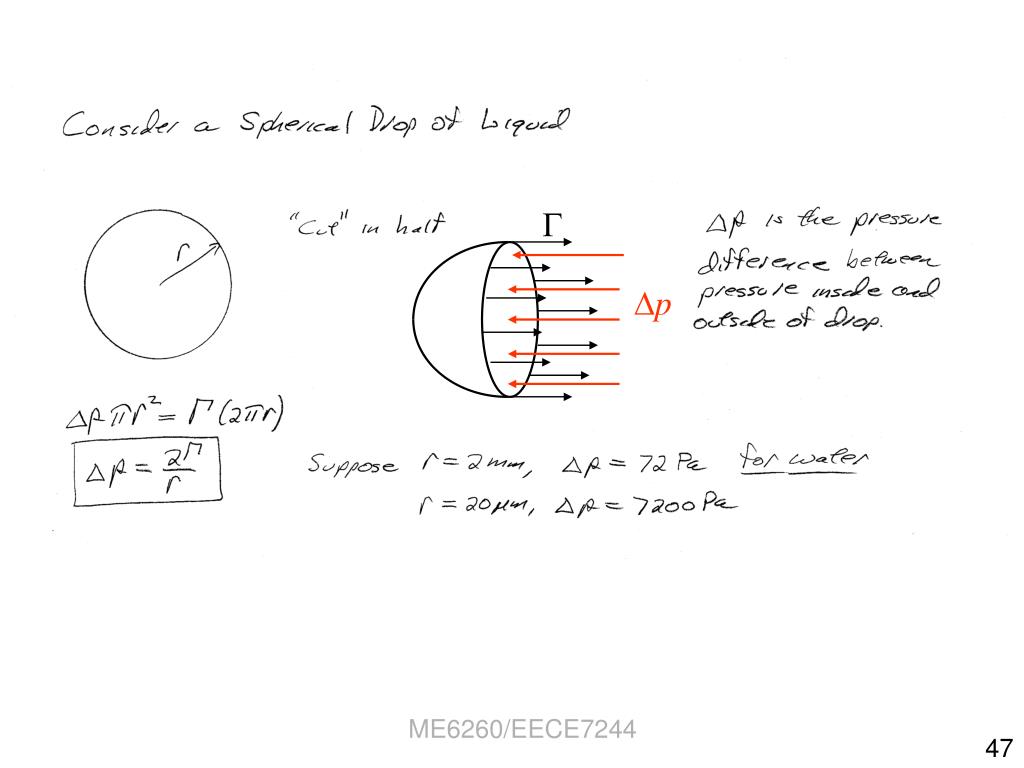 Consider a Spherical Drop of Liquid
r
"Cut" in half
Γ
Δp
Δp is the pressure
difference between
pressure inside and
outside of drop.
Δp πr² = Γ(2πr)
Δp = 2Γ/r
Suppose r = 2mm, Δp = 72 Pa for water
r = 20μm, Δp = 7200 Pa
ME6260/EECE7244
47